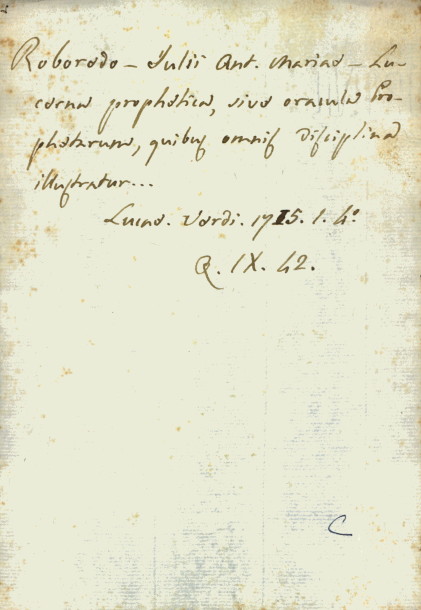 Roboredo – Julii Ant. Mariae – Lu-
cerna prophetica, sive oracula Pro-
phetarum, quibus omnis disciplina
illustratur...
Lucae. Verdi. 1715. 1. 4°
Q. IX. 42.
C